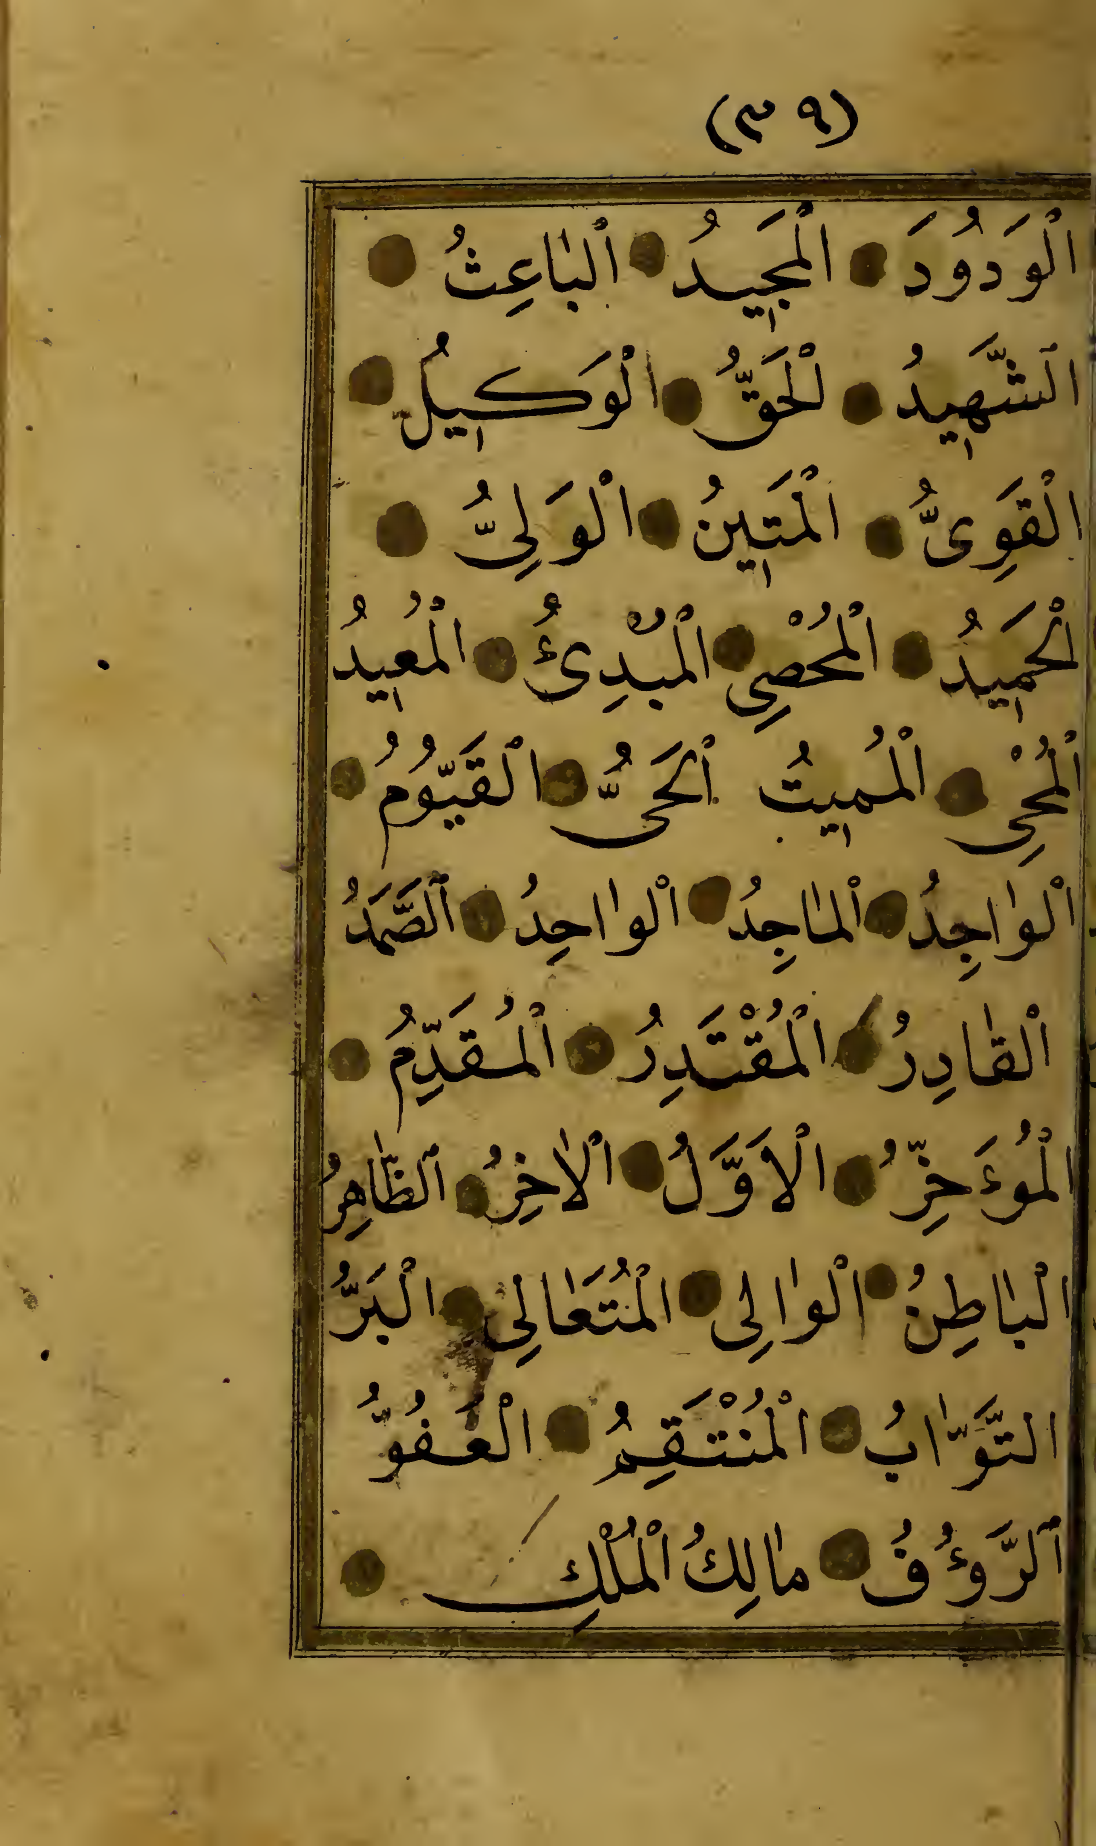 (٣٩)
الْوَدُودَ الْمَجِيدُ الْبَاعِثُ
الشَّهِيدُ لْحَقُّ الْوَكِيلُ
الْقَوِىُّ الْمَتِينُ الْوَلِىُّ
الْحَمِيدُ الْمُحْصِى الْمُبْدِئُ الْمُعِيدُ
الْمُحْىِ الْمُمِيتُ الْحَىُّ الْقَيُّومُ
الْوَاجِدُ الْمَاجِدُ الْوَاحِدُ الصَّمَدُ
الْقَادِرُ الْمُقْتَدِرُ الْمُقَدِّمُ
الْمُوءَخِّرُ الْاَوَّلُ الْاٰخِرُ الظَّاهِرُ
الْبَاطِنُ الْوَالِى الْمُتَعَالِى الْبَرُّ
التَّوَّابُ الْمُنْتَقِمُ الْعَفُوُّ
الرَّوءُفُ مَالِكُ الْمُلْكِ